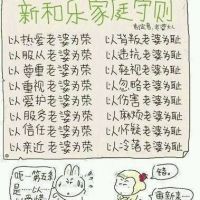 新和乐家庭守则
以热爱老婆为荣 以背叛老婆为耻
以服从老婆为荣 以违抗老婆为耻
以尊重老婆为荣 以轻视老婆为耻
以重视老婆为荣 以忽略老婆为耻
以爱护老婆为荣 以伤害老婆为耻
以服务老婆为荣 以麻烦老婆为耻
以信任老婆为荣 以怀疑老婆为耻
以亲近老婆为荣 以冷落老婆为耻
呃…第五条
是…以…
错。
重新来